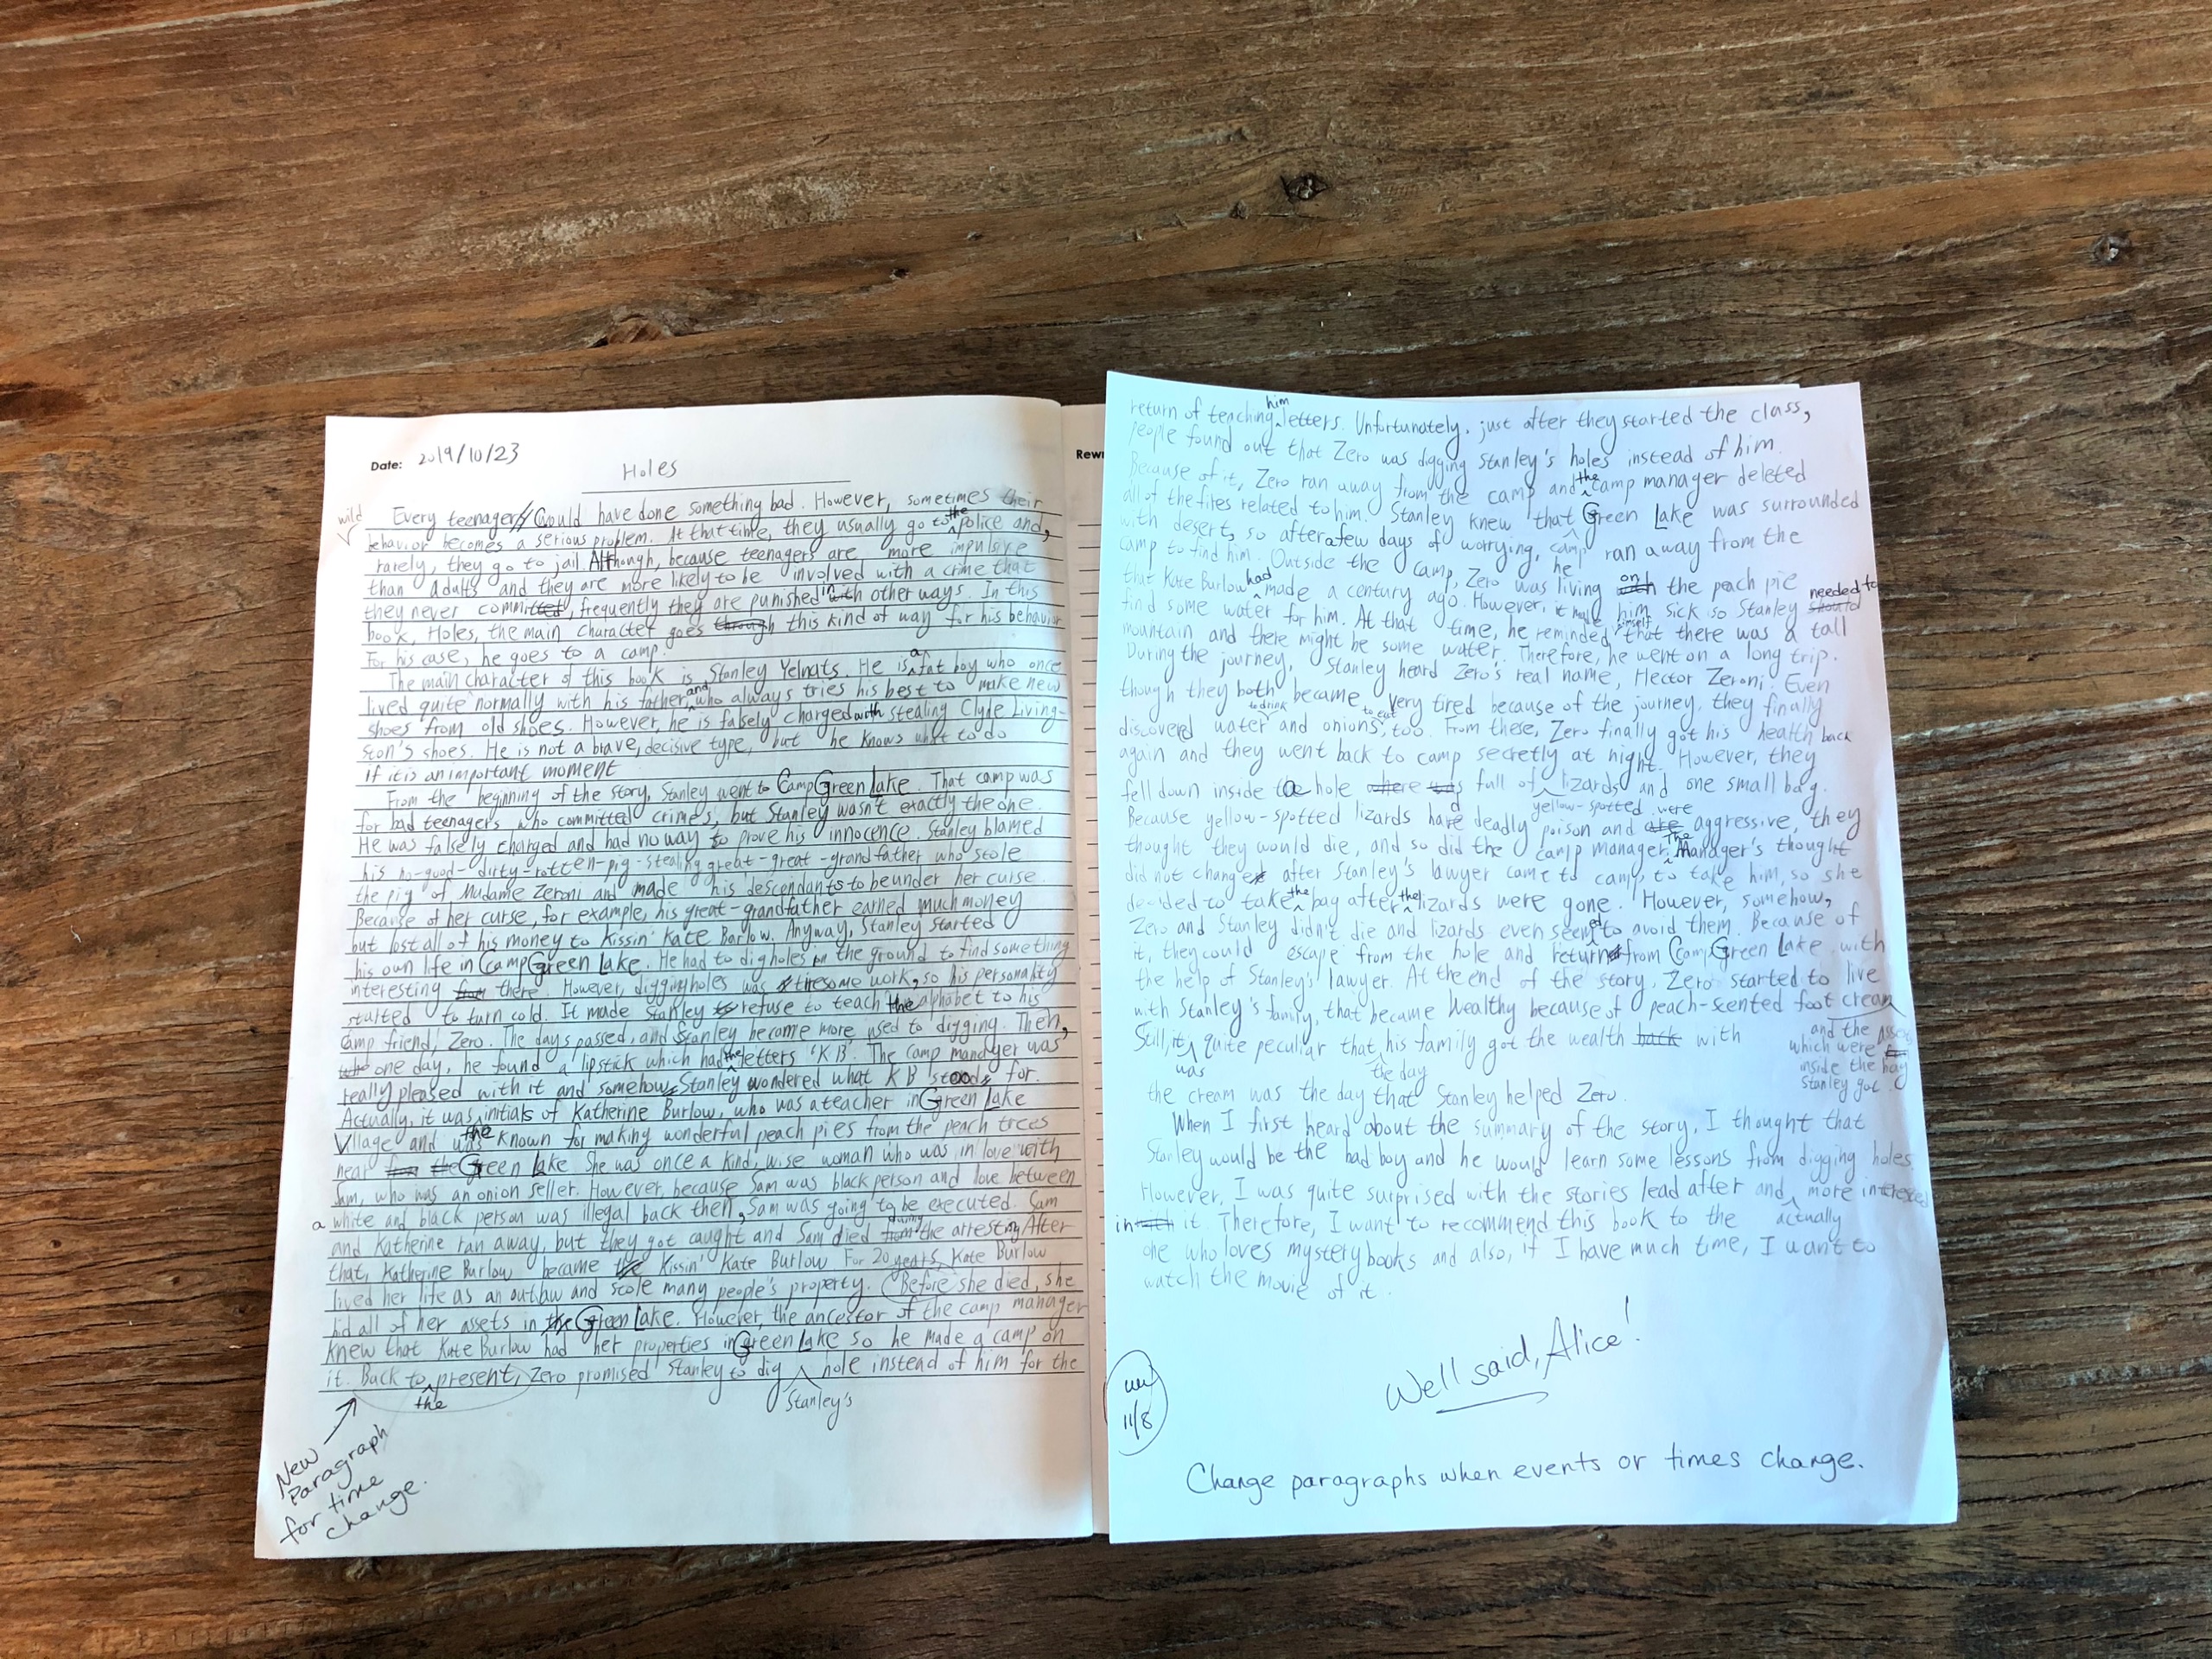 Date: 2019/10/23
Holes
Every teenager would have done something bad. However, sometimes their
wild
behavior becomes a serious problem. At that time, they usually go to the police and,
rarely, they go to jail. Although, because teenagers are more impulsive
than adults and they are more likely to be involved with a crime that
they never committed, frequently they are punished in other ways. In this
book, Holes, the main character goes through this kind of way for his behavior
For his case, he goes to a camp.
The main character of this book is Stanley Yelnats. He is a fat boy who once
lived quite normally with his father, and who always tries his best to make new
shoes from old shoes. However, he is falsely charged with stealing Clyde Living-
ston's shoes. He is not a brave, decisive type, but he knows what to do
if it is an important moment
From the beginning of the story, Stanley went to Camp Green Lake. That camp was
for bad teenagers who committed crimes, but Stanley wasn't exactly the one.
He was falsely charged and had no way to prove his innocence. Stanley blamed
his no-good-dirty-rotten-pig-stealing great-great-grandfather who stole
the pig of Madame Zeroni and made his descendants to be under her curse.
Because of her curse, for example, his great-grandfather earned much money
but lost all of his money to Kissin' Kate Barlow. Anyway, Stanley started
his own life in Camp Green Lake. He had to dig holes in the ground to find something
interesting from there. However, digging holes was tiresome work, so his personality
started to turn cold. It made Stanley to refuse to teach the alphabet to his
camp friend, Zero. The days passed, and Stanley become more used to digging. Then,
one day, he found a lipstick which had the letters 'K B'. The camp manager was
really pleased with it and somehow Stanley wondered what K B stood for.
Actually, it was initials of Katherine Burlow, who was a teacher in Green Lake
Village and was the known for making wonderful peach pies from the peach trees
near from the Green Lake. She was once a kind, wise woman who was in love with
Sam, who was an onion seller. However, because Sam was black person and love between
a white and black person was illegal back then, Sam was going to be executed. Sam
and Katherine ran away, but they got caught and Sam died from during the arresting. After
that, Katherine Burlow became the Kissin' Kate Burlow For 20 years, Kate Burlow
lived her life as an outlaw and stole many people's property. Before she died, she
hid all of her assets in the Green Lake. However, the ancestor of the camp manager
knew that Kate Burlow had her properties in Green Lake so he made a camp on
it. Back to the present, Zero promised Stanley to dig Stanley's hole instead of him for the
New
Paragraph
for time
change.
Rewr
return of teaching him letters. Unfortunately, just after they started the class,
people found out that Zero was digging Stanley's holes instead of him.
Because of it, Zero ran away from the camp and the camp manager deleted
all of the files related to him. Stanley knew that Green Lake was surrounded
with desert, so after a few days of worrying, he ran away from the
camp to find him. Outside the camp, Zero was living on the peach pie
that Kate Burlow had made a century ago. However, it made him sick so Stanley needed to should
find some water for him. At that time, he reminded himself that there was a tall
mountain and there might be some water. Therefore, he went on a long trip.
During the journey, Stanley heard Zero's real name, Hector Zeroni. Even
though they both became very tired because of the journey, they finally
discovered water to drink and onions to eat, too. From these, Zero finally got his health back
again and they went back to camp secretly at night. However, they
fell down inside a hole where was full of yellow-spotted lizards and one small bag.
Because yellow-spotted lizards had deadly poison and were are aggressive, they
thought they would die, and so did the camp manager. The Manager's thought
did not change after Stanley's lawyer came to camp, to take him, so she
decided to take the bag after the lizards were gone. However, somehow,
Zero and Stanley didn't die and lizards even seemed to avoid them. Because of
it, they could escape from the hole and return from Camp Green Lake with
the help of Stanley's lawyer. At the end of the story, Zero started to live
with Stanley's family, that became wealthy because of peach-scented foot cream
and the
which were
inside the bag
Stanley got
Still, it was quite peculiar that the day his family got the wealth back with
the cream was the day that Stanley helped Zero.
When I first heard about the summary of the story, I thought that
Stanley would be the bad boy and he would learn some lessons from digging holes
However, I was quite surprised with the stories lead after and actually more interested
in with it. Therefore, I want to recommend this book to the
one who loves mystery books and also, if I have much time, I want to
watch the movie of it.
Well said, Alice!
11/8
Change paragraphs when events or times change.